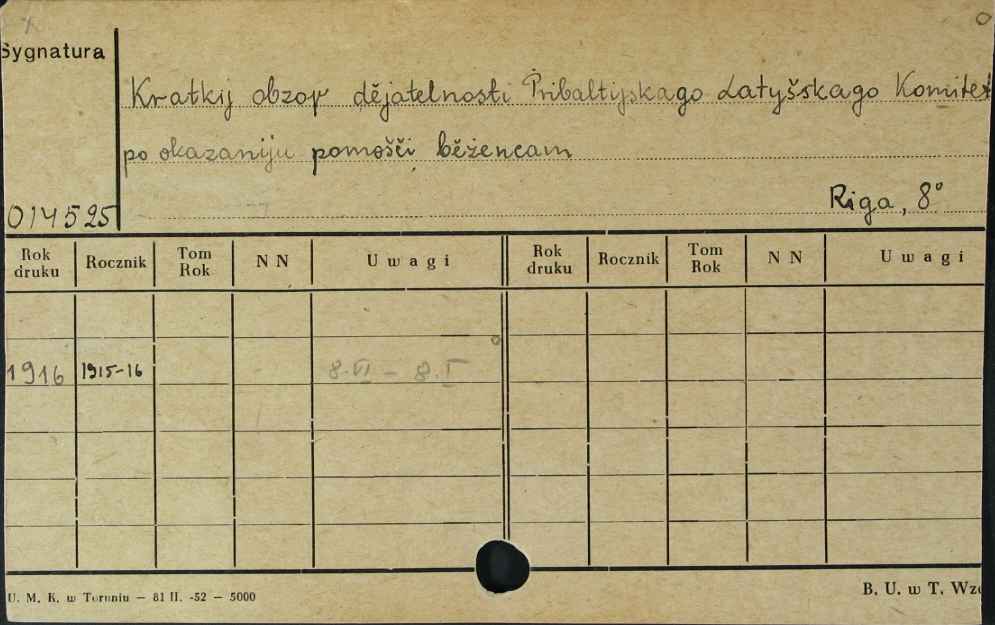 Sygnatura
Kratkij obzor dějatelnosti Pribaltijskago Latyšskago Komitet
po okazaniju pomošči běžencam
Riga, 8°
014525
Rok druku Rocznik Tom Rok N N Uwagi Rok druku Rocznik Tom Rok N N Uwagi
1916 1915-16 8.VI - 8.I
U. M. K. w Toruniu — 81 II. -52 — 5000
B. U. w T. Wzó